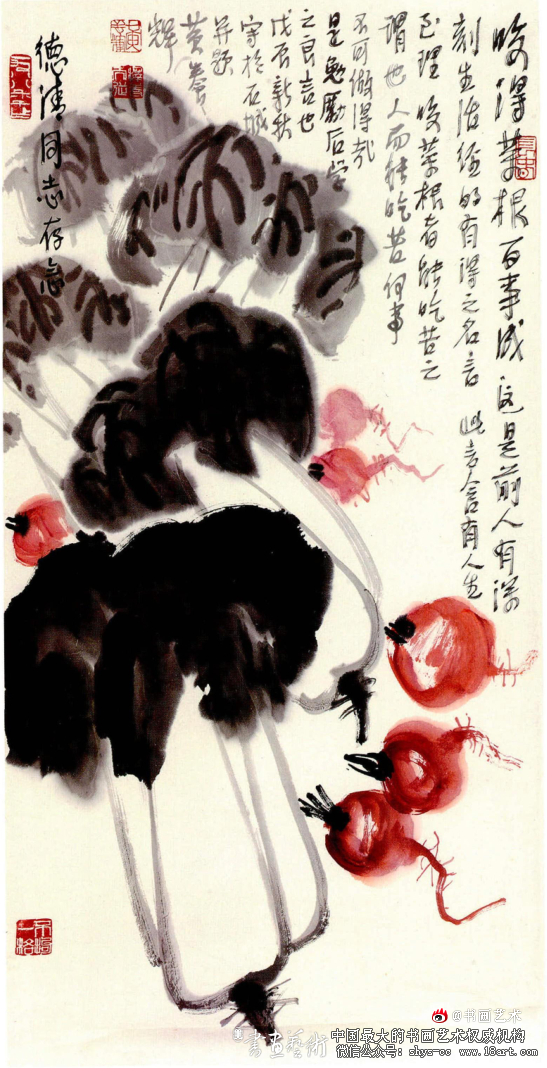 咬得菜根百事成 这是前人有深
刻生活经的有得之名言 此言含有人生
至理 咬菜根者能吃苦之
谓也 人而能吃苦 何事
不可做得哉
是勉励后学
之良言也
戊辰新秋
写于石城
并题
黄养
辉
德清同志存念
@书画艺术
書画藝術
中国最大的书画艺术权威机构
微信公众号: shys-cc www.18art.com